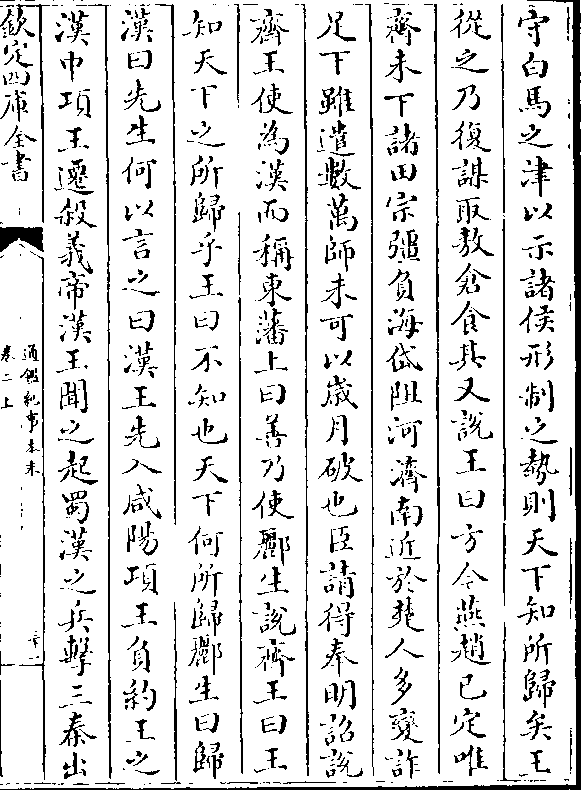 守白馬之津以示諸侯形制之勢則天下知所歸矣王
從之乃復謀取敖倉食其又說王曰方今燕趙已定唯
齊未下諸田宗彊負海岱阻河濟南近於楚人多變詐
足下雖遣數萬師未可以歲月破也臣請得奉明詔說
齊王使為漢而稱東藩上曰善乃使酈生說齊王曰王
知天下之所歸乎王曰不知也天下何所歸酈生曰歸
漢曰先生何以言之曰漢王先入咸陽項王負約王之
漢中項王遷殺義帝漢王聞之起蜀漢之兵擊三秦出
欽定四庫全書
通鑑紀事本末
卷二上